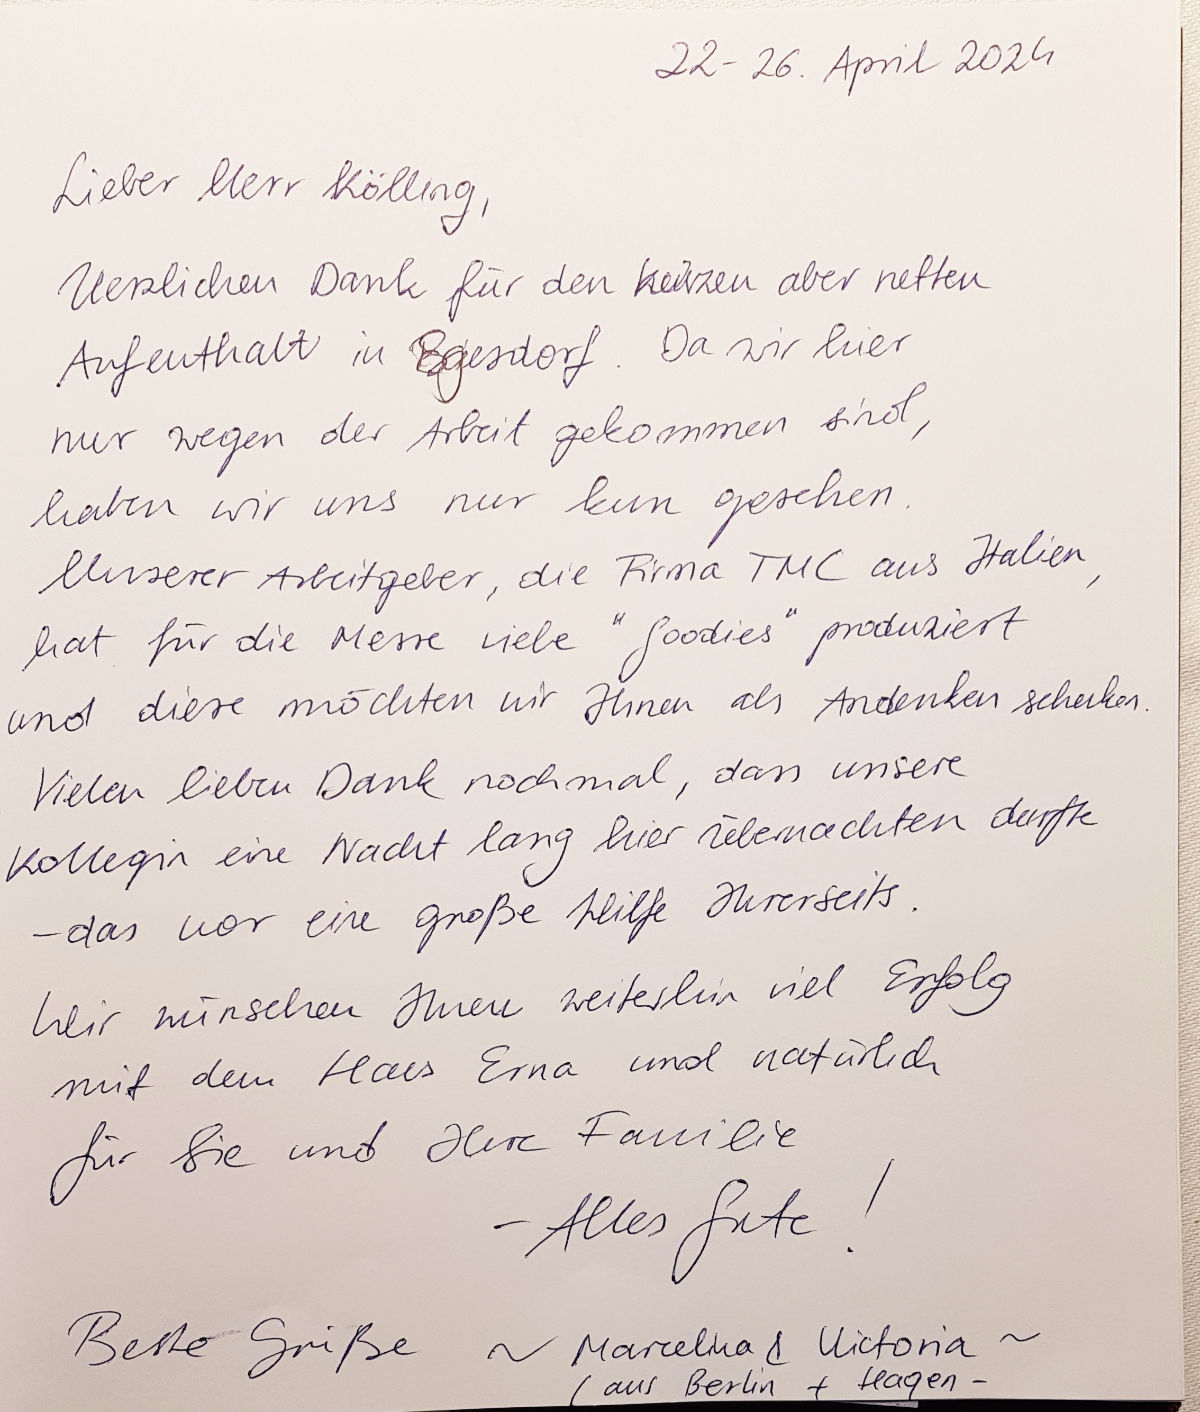 22-26. April 2024
Lieber Herr Kölling,
Herzlichen Dank für den kurzen aber netten
Aufenthalt in Egesdorf. Da wir hier
nur wegen der Arbeit gekommen sind,
haben wir uns nur kurz gesehen.
Unserer Arbeitgeber, die Firma TMC aus Italien,
hat für die Messe viele "Goodies" produziert
und diese möchten wir Ihnen als Andenken schenken.
Vielen lieben Dank nochmal, dass unsere
Kollegin eine Nacht lang hier übernachten durfte
- das war eine große Hilfe Ihrerseits.
Wir wünschen Ihnen weiterhin viel Erfolg
mit dem Haus Erna und natürlich
für Sie und Ihre Familie
- Alles Gute!
Beste Grüße ~ Marcelina & Victoria ~
(aus Berlin + Hagen -